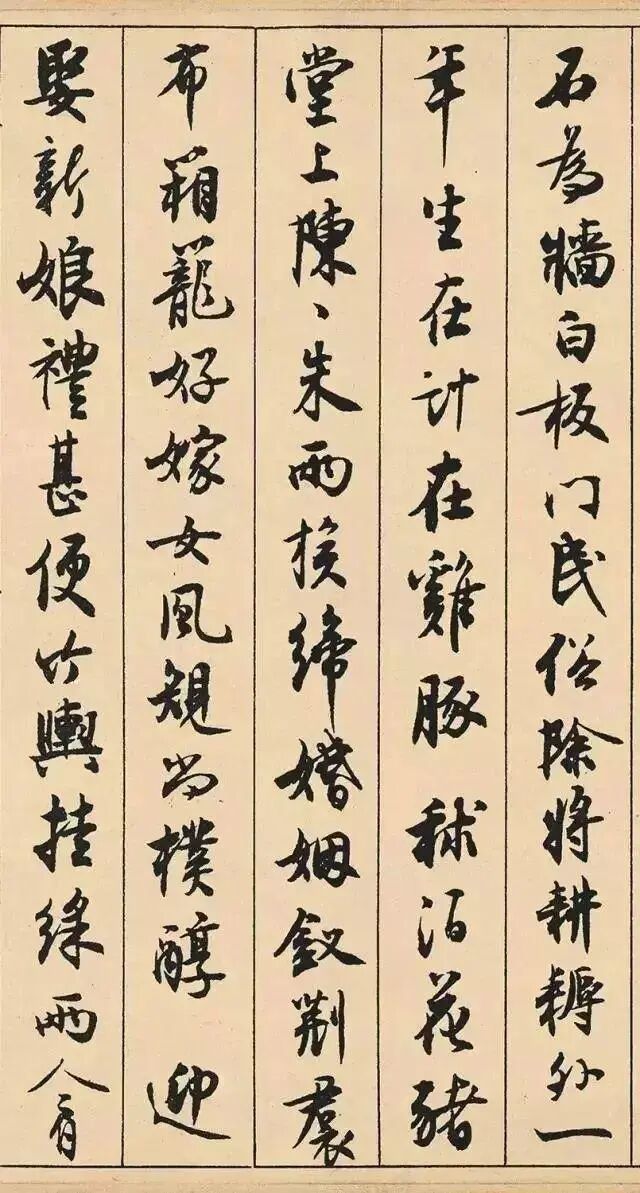 石為牆白板门民俗除將耕耨外一
年生在计在雞豚 秫酒花豬
堂上陳、朱兩族締婚姻釵荆裠
布箱籠好嫁女風規尚樸醇 迎
娶新娘禮甚便竹輿挂綵兩人肩